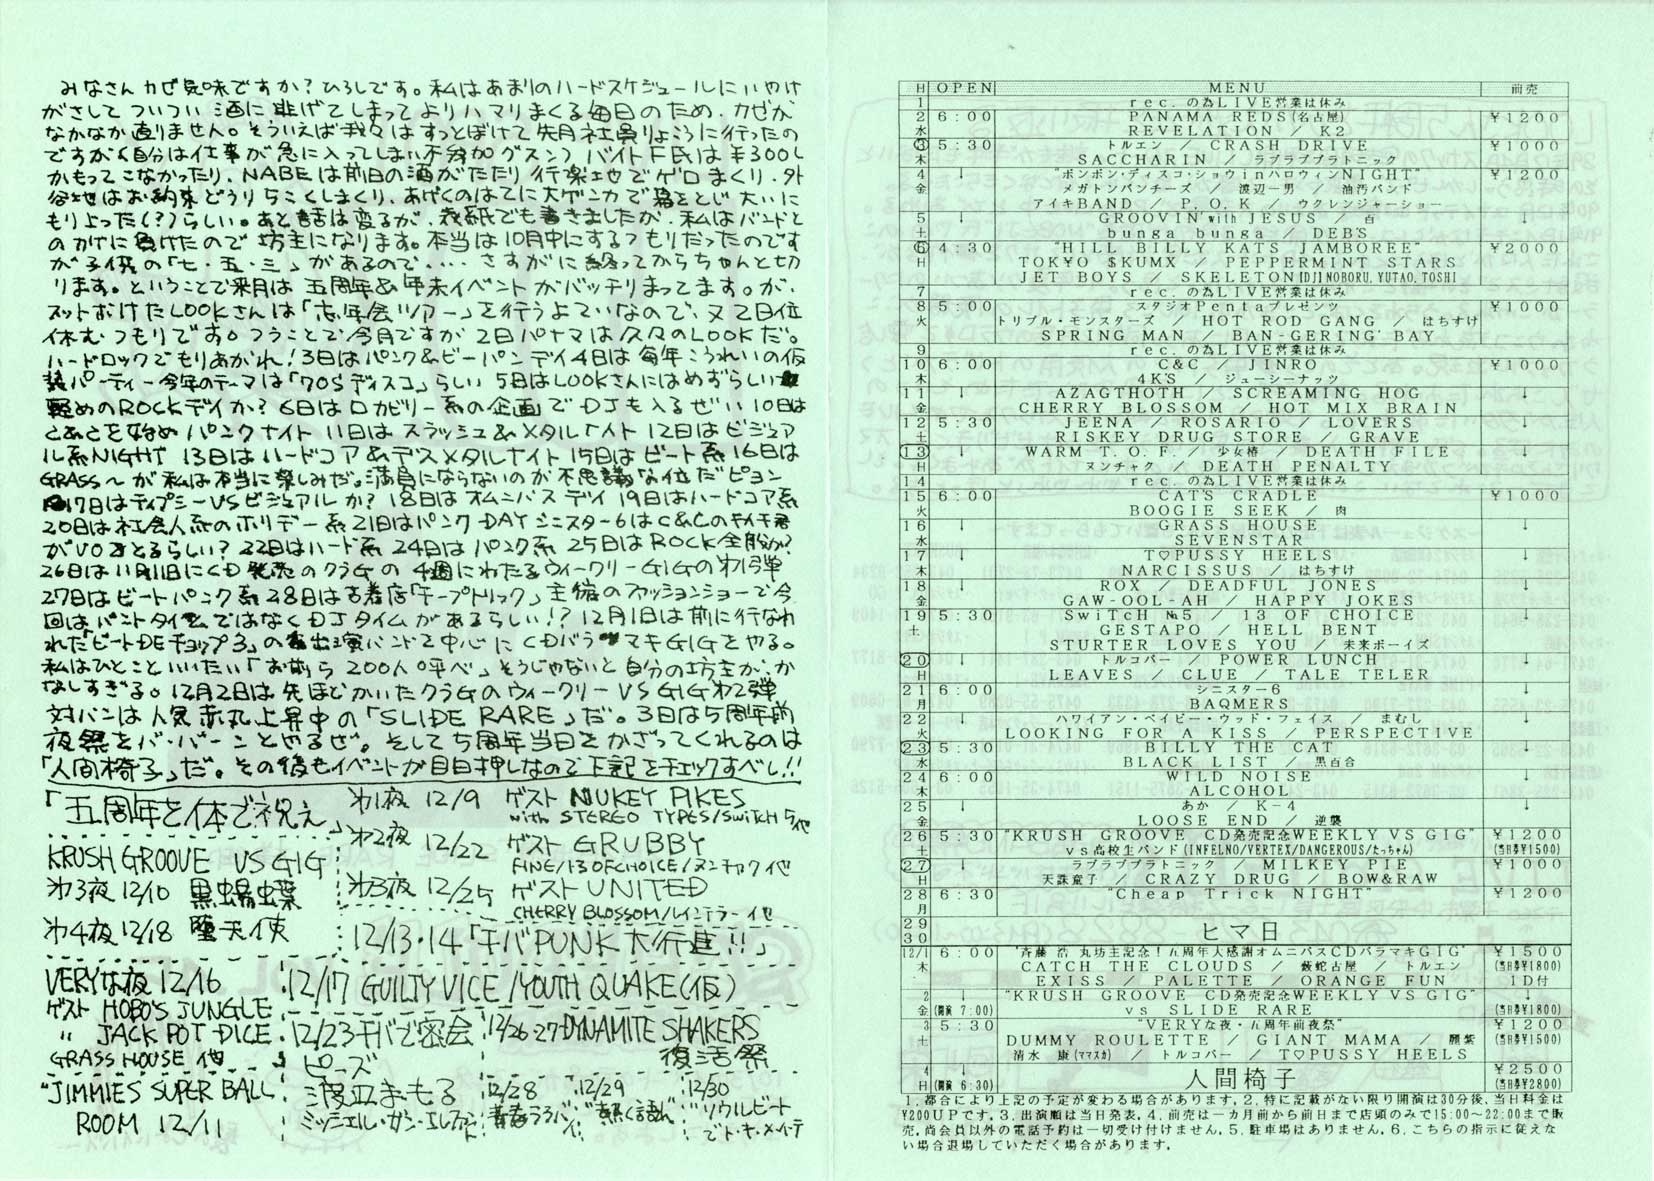 みなさんカゼ気味ですか?ひろしです。私はあまりのハードスケジュールにいやけ
がさしてついつい酒に逃げてしまってよりハマりまくる毎日のため、カゼが
なかなか直りません。そういえば我々はすっとぼけて先月社員りょこうに行ったの
ですが(自分は仕事が急に入ってしまい不参加グスン)バイトF氏は¥300し
かもってこなかったり、NABEは前日の酒がたたり行楽地でゲロまくり、外
谷地はお約束どうりらこくしまくり、あげくのはてに大ゲンカで幕をとじ大いに
もり上った(?)らしい。あと話は変るが、表紙でも書きましたが、私はバンドと
のかけに負けたので坊主になります。本当は10月中にするつもりだったのです
が子供の「七・五・三」があるので、・・・さすがに終ってからちゃんと切
ります。ということで来月は五周年&年末イベントがバッチリきまってます。が、
スットボけたLOOKさんは「忘年会ツアー」を行うよていなので、又2日位
休むつもりです。つうことで今月ですが2日パナマは久々のLOOKだ。
ハードロックでもりあがれ!3日はパンク&ビーパンデイ4日は毎年こうれいの仮
装パーティー今年のテーマは「70Sディスコ」らしい5日はLOOKさんにはめずらしい
軽めのROCKデイか?6日はロカビリー系の企画でDJも入るぜい10日は
パンクナイト11日はスラッシュ&メタルナイト12日はビジュア
ル系NIGHT 13日はハードコア&デスメタルナイト15日はビート系16日は
GRASS〜が私は本当に楽しみだ。満員にならないのが不思議な位だピョン
17日はティプシーVSビジュアルか?18日はオムニバスデイ19日はハードコア系
20日は社会人系のホリデー系21日はパンクDAYシニスター6はC&Cのキイチ君
がVOをとるらしい?22日はハード系24日はパンク系25日はROCK全般か?
26日は11月11日にCD発売のクラGの4週にわたるウィークリーGIGの第1弾
27日はビートパンク系28日は古着店「チープトリック」主催のファッションショーで今
回はバンドタイムではなくDJタイムがあるらしい!?12月1日は前に行なわ
れた「ビートDEチョップ3」の出演バンドを中心にCDバラマキGIGをやる。
私はひとこといいたい「お前ら200人呼べ」そうじゃないと自分の坊主がか
なしすぎる。12月2日は先ほどかいたクラGのウィークリーVSGIG第2弾
対バンは人気赤丸上昇中の「SLIDE RARE」だ。3日は5周年前
夜祭をバ・バーンとやるぜ。そして5周年当日をかざってくれるのは
「人間椅子」だ。その後もイベントが目白押しなので下記をチェックすべし!!
「五周年を体で祝え」
第1夜 12/9 ゲスト NUKEY PIKES
with STEREO TYPES/SWITCH 5他
第2夜 12/22 ゲスト GRUBBY
FINE/13 OF CHOICE/ヌンチャク他
第3夜 12/25 ゲスト UNITED
CHERRY BLOSSOM/レインテラー他
KRUSH GROOVE VS GIG
第3夜 12/10 黒蝪蝶
第4夜 12/18 堕天使
12/13・14「千バPUNK大行進!!」
VERYな夜 12/16
ゲスト HOBO'S JUNGLE
〃 JACK POT DICE
GRASS HOUSE 他
12/17 GUILTY VICE/YOUTH QUAKE(仮)
12/23 千バで密会
ピーズ
渡辺まもる
ミッシェル・ガン・エレファント
12/26・27 DYNAMITE SHAKERS
復活祭
"JIMMIES SUPER BALL
ROOM 12/11
12/28
12/29
"熱く語れ"
12/30
"ソウルビート
日 OPEN MENU 前売
1 rec.の為LIVE営業は休み
2 6:00 PANAMA REDS(名古屋) ¥1200
水 REVELATION / K2
3 5:30 トルエン / CRASH DRIVE ↓
木 SACCHARIN / ラブラブプラトニック
4 ↓ "ボンボン・ディスコ・ショウinハロウィンNIGHT" ¥1200
金 メガトンパンチーズ / 渡辺一男 / 油汚バンド
アイキBAND / P.O.K / ウクレンジャーショー
5 ↓ GROOVIN'with JESUS / 百 ↓
土 bunga bunga / DEB'S
6 4:30 "HILL BILLY KATS JAMBOREE" ¥2000
日 TOK¥O $KUMX / PEPPERMINT STARS
JET BOYS / SKELETON[DJ]NOBORU,YUTAO,TOSHI
7 rec.の為LIVE営業は休み
8 5:00 スタジオPentaプレゼンツ ¥1000
火 トリプル・モンスターズ / HOT ROD GANG / はちすけ
SPRING MAN / BAN-GERING' BAY
9 rec.の為LIVE営業は休み
10 6:00 C&C / JINRO ¥1000
木 4K'S / ジューシーナッツ
11 ↓ AZAGTHOTH / SCREAMING HOG ↓
金 CHERRY BLOSSOM / HOT MIX BRAIN
12 5:30 JEENA / ROSARIO / LOVERS ↓
土 RISKEY DRUG STORE / GRAVE
13 ↓ WARM T.O.F. / 少女椿 / DEATH FILE ↓
日 ヌンチャク / DEATH PENALTY
14 rec.の為LIVE営業は休み
15 6:00 CAT'S CRADLE ¥1000
火 BOOGIE SEEK / 肉
16 ↓ GRASS HOUSE ↓
水 SEVENSTAR
17 ↓ T♡PUSSY HEELS ↓
木 NARCISSUS / はちすけ
18 ↓ ROX / DEADFUL JONES ↓
金 GAW-OOL-AH / HAPPY JOKES
19 5:30 SWiTCH №5 / 13 OF CHOICE ↓
土 GESTAPO / HELL BENT
STURTER LOVES YOU / 未来ボーイズ
20 ↓ トルコバー / POWER LUNCH ↓
日 LEAVES / CLUE / TALE TELER
21 6:00 シニスター6 ↓
月 BAQMERS
22 ↓ ハワイアン・ベイビー・ウッド・フェイス / まむし ↓
火 LOOKING FOR A KISS / PERSPECTIVE
23 5:30 BILLY THE CAT ↓
水 BLACK LIST / 黒百合
24 6:00 WILD NOISE ↓
木 ALCOHOL
25 ↓ あか / K-4 ↓
金 LOOSE END / 逆襲
26 5:30 "KRUSH GROOVE CD発売記念WEEKLY VS GIG" ¥1200
土 vs高校生バンド(INFELNO/VERTEX/DANGEROUS/たっちゃん) (当日券¥1500)
27 ↓ ラブラブプラトニック / MILKEY PIE ¥1000
日 天誅童子 / CRAZY DRUG / BOW&RAW
28 6:30 "Cheap Trick NIGHT" ¥1200
月
29
30 ヒマ日
12/1 6:00 "斉藤 浩 丸坊主記念!五周年大感謝オムニバスCDバラマキGIG" ¥1500
木 CATCH THE CLOUDS / 薮蛇古屋 / トルエン (当日券¥1800)
EXISS / PALETTE / ORANGE FUN 1D付
2 ↓ "KRUSH GROOVE CD発売記念WEEKLY VS GIG" ↓
金 (開演 7:00) vs SLIDE RARE (当日券¥1800)
3 5:30 "VERYな夜・五周年前夜祭" ¥1200
土 DUMMY ROULETTE / GIANT MAMA / 願紫 (当日券¥1500)
清水 康(ママスカ) / トルコバー / T♡PUSSY HEELS
4 ↓ 人間椅子 ¥2500
日 (開演 6:30) (当日券¥2800)
1.都合により上記の予定が変わる場合があります,2.特に記載がない限り開演は30分後,当日料金は
¥200UPです,3.出演順は当日発表,4.前売は一カ月前から前日まで店頭のみで15:00〜22:00まで販
売,尚会員以外の電話予約は一切受け付けません,5.駐車場はありません,6.こちらの指示に従えな
い場合退場していただく場合があります。